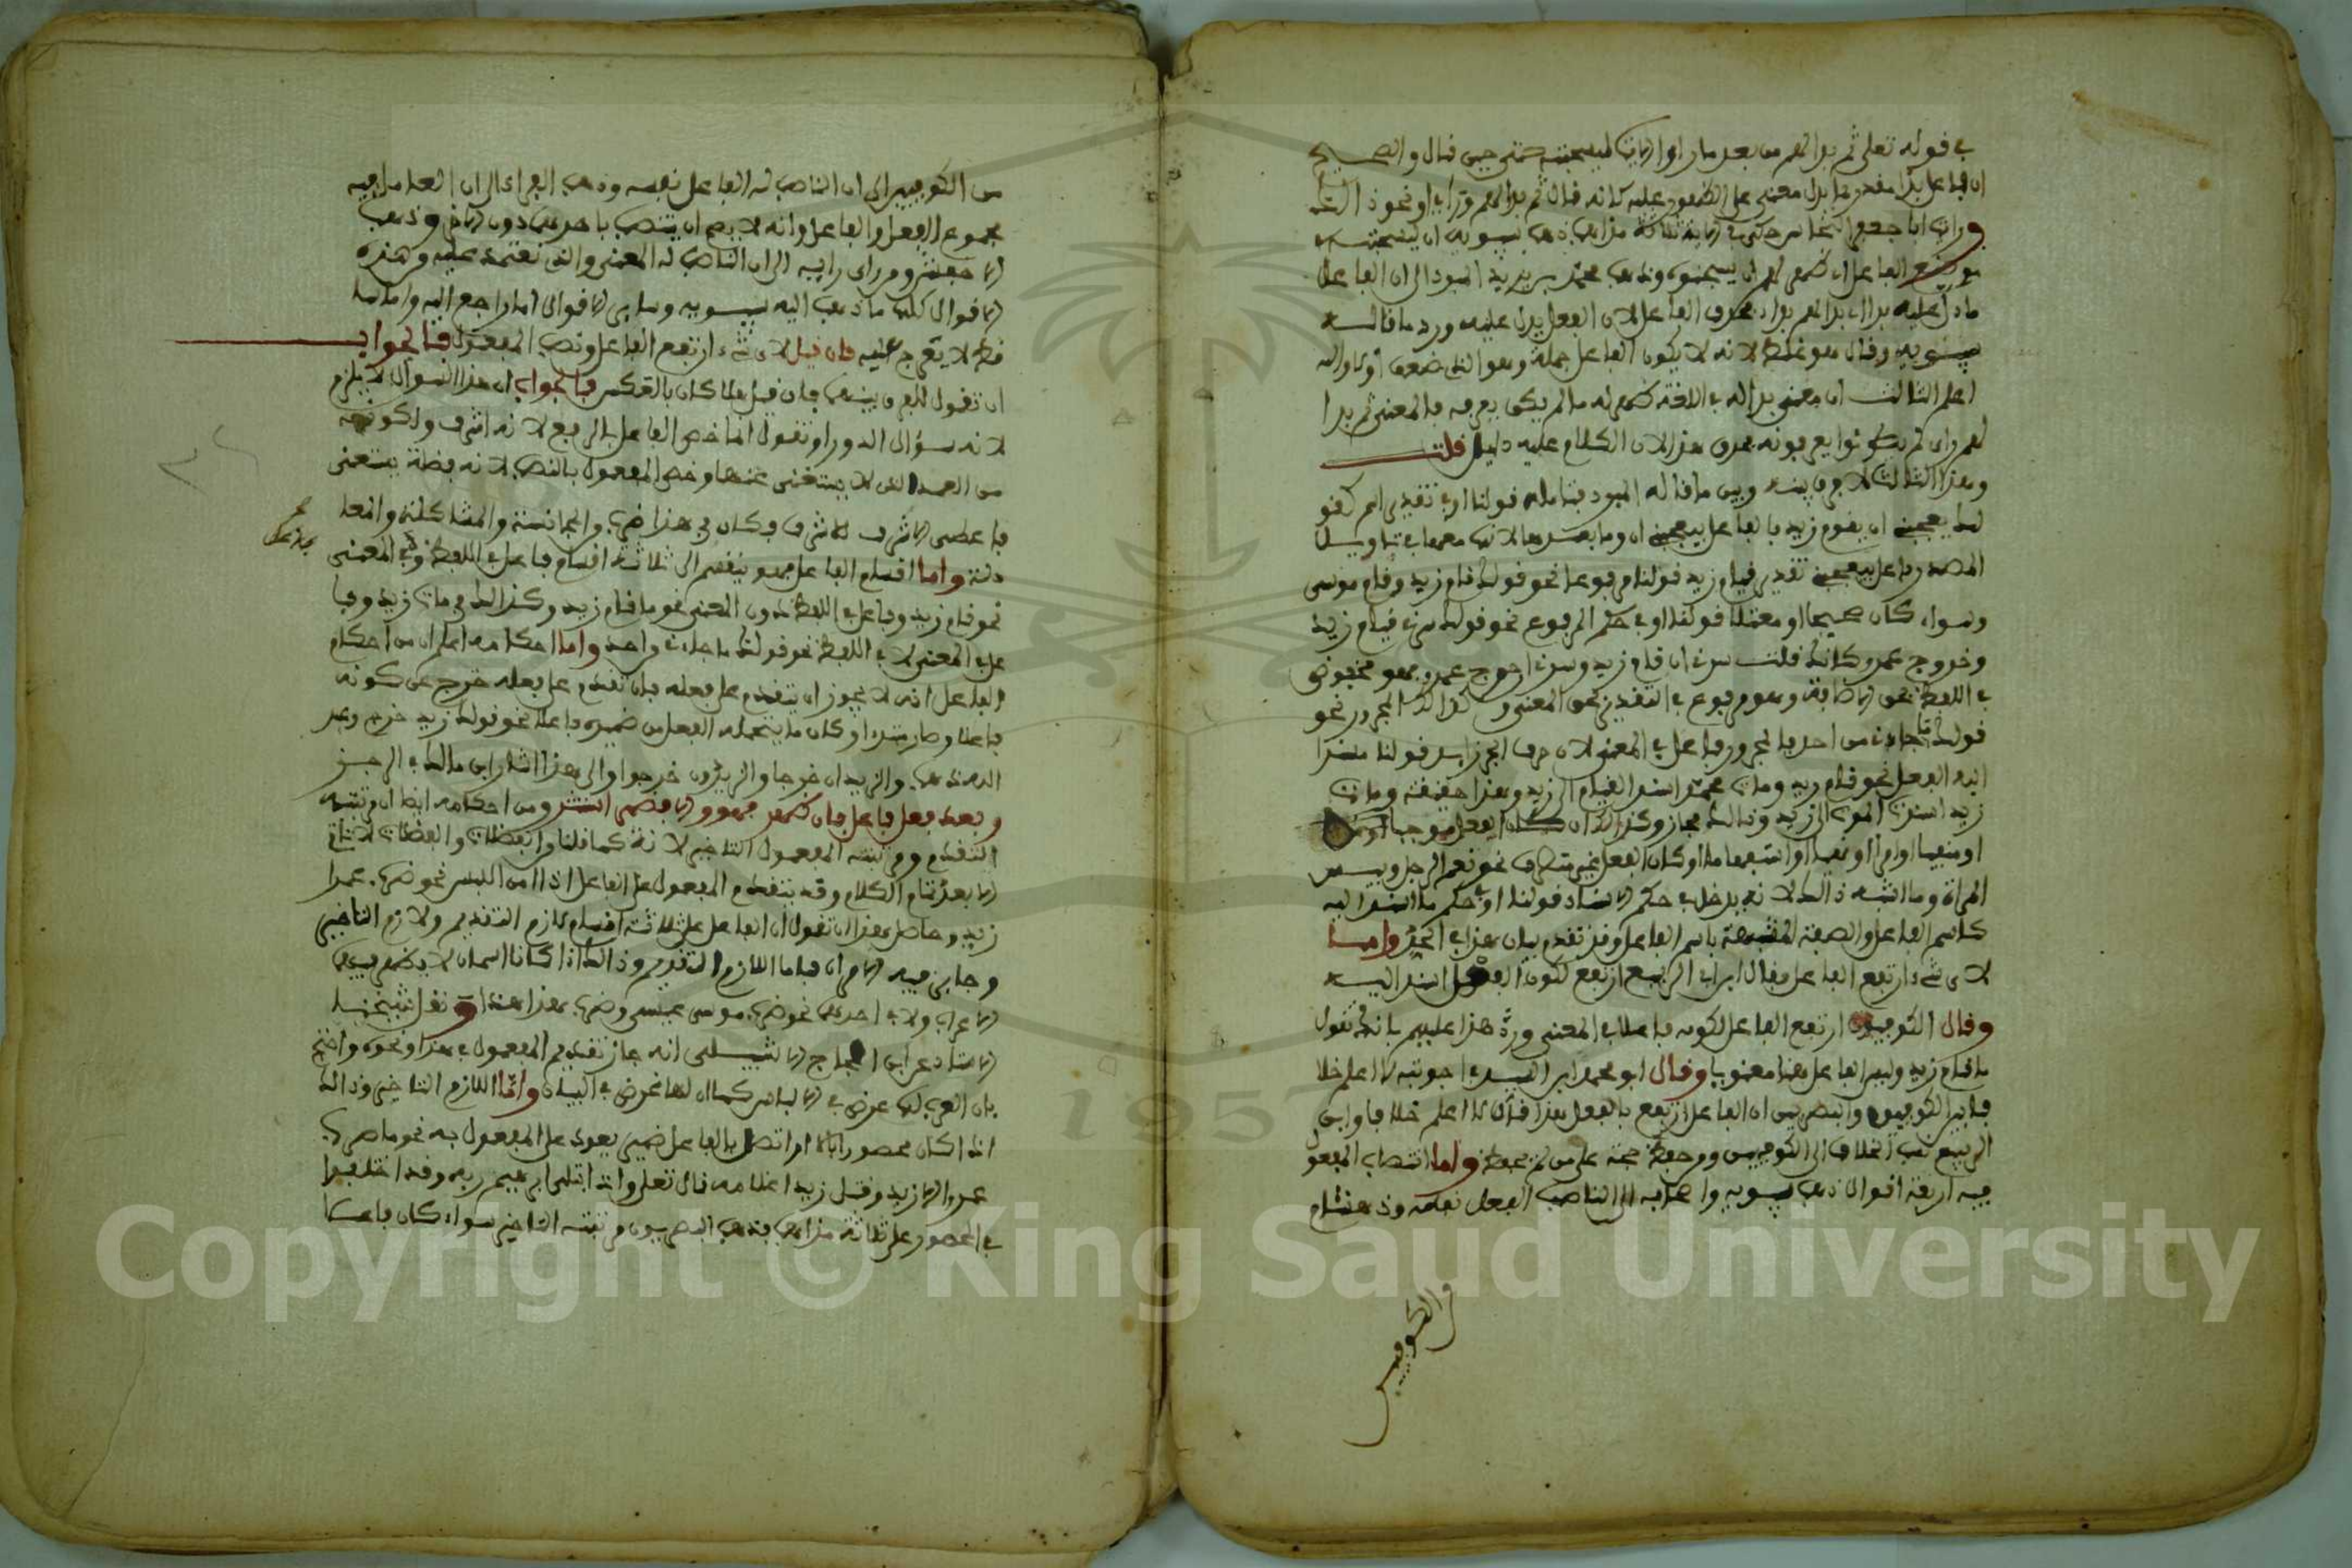 في قوله تعلى ثم بدا لهم من بعد ما راوا الايات ليسجننه حتى حين قال والصحيح
ان فاعل بدا مضمر معنى عليه كانه قال ثم بدا لهم راي او نحو ذا
ورايت ابا جعفر النحاس حكى في الاية ثلاثة مذاهب ذهب سيبويه ان ليسجننه
موضع الفاعل اي ظهر لهم ان يسجنوه وذهب محمد بن يزيد المبرد الى ان الفاعل
ما دل عليه بدا اي بدا لهم بداء فحذف الفاعل لان الفعل يدل عليه ورد ما قاله
سيبويه وقال هو غلط لانه لا يكون الفاعل جملة وهو الذي ضعف
اعلم الثالث ان معنى بدا له في اللغة ظهر له ما لم يكن يعرفه فالمعنى ثم بدا
لهم راي لم يكونوا يعرفونه فحذف هذا لان الكلام عليه دليل قلت
وهذا الثالث لا فرق بينه وبين ما قاله المبرد فتامله قولنا او في تقدير اسم كقو
لك يعجبني ان يقوم زيد فالفاعل بيعجبني ان وما بعدها لانها معها في تاويل
المصدر فاعل بيعجبني تقديره قيام زيد قولنا مرفوعا نحو قولك قام زيد وقام موسى
وسواء كان صحيحا او معتلا قولنا او في حكم المرفوع نحو قولك سرني قيام زيد
وخروج عمرو كانك قلت سرني ان قام زيد وسرني خروج عمرو فهو مخفوض
في اللفظ بحق الاضافة وهو مرفوع في التقدير بحق المعنى وكذالك المجرور نحو
قولك ما جاءني من احد فالمجرور فاعل في المعنى لان حرف الجر زايد قولنا مسندا
اليه الفعل نحو قام زيد ومات محمد اسند القيام الى زيد وهذا حقيقة ومات
زيد اسند الموت الى زيد وذالك مجاز وكذالك ان كان الفعل موجبا
او منفيا او امرا او نهيا او استفهاما او كان الفعل غير متصرف نحو نعم الرجل وبيس
المراة وما اشبه ذالك لانه يدخل في حكم الاسناد قولنا او في حكم ما اسند اليه
كاسم الفاعل والصفة المشبهة باسم الفاعل وقد تقدم بيان هذا في الحد واما
لاي شيء ارتفع الفاعل فقال ابن ابي الربيع ارتفع لكون الفعل اسند اليه
وقال الكوفيون ارتفع الفاعل لكونه فاعلا في المعنى ورد هذا عليهم بانك تقول
ما قام زيد وليس الفاعل هنا معنويا وقال ابو محمد ابن السيد في اجوبته لا اعلم خلا
فا بين الكوفيين والبصريين ان الفاعل ارتفع بالفعل هذا قال لا اعلم خلافا وابن
الربيع نسب الخلاف الى الكوفيين ومن حفظ حجة على من لم يحفظ واما انتصاب المفعول
فيه اربعة اقوال ذهب سيبويه واصحابه الى ان الناصب الفعل نفسه وذهب هشام
من الكوفيين الى ان الناصب له الفاعل نفسه وذهب الفراء الى ان العامل فيه
مجموع الفعل والفاعل وانه لا يصح ان ينتصب باحدهما دون الاخر وذهب
ابو جعفر ومن راى رايه الى ان الناصب له المعنى والذي نعتمد عليه وهذه
الاقوال كلها ما ذهب اليه سيبويه وساير الاقوال اما راجع اليه واما ما
قط لا يعرج عليه فان قيل لاي شيء ارتفع الفاعل ونصب المفعول فالجواب
ان تقول للفرق بينهما فان قيل هلا كان بالعكس فالجواب ان هذا السوال لا يلزم
لانه سؤال الدور او تقول انما خص الفاعل بالرفع لانه اشرف ولكونه
من العمد الذي لا يستغنى عنها وخص المفعول بالنصب لانه فضلة يستغنى
فاعطى الاشرف للاشرف فكان في هذا والمجانسة والمشاكلة والمعا
دلة واما اقسام الفاعل فهو ينقسم الى ثلاثة اقسام فاعل في اللفظ وفي المعنى
نحو قام زيد وفاعل في اللفظ دون المعنى نحو ما قام زيد وكذالك مات زيد وفا
عل في المعنى لا في اللفظ نحو قولك ما جاءني واحد واما احكامه اعلم ان من احكام
الفاعل انه لا يجوز ان يتقدم على فعله فان تقدم على فعله خرج عن كونه
فاعلا وصار مبتدا وكان ما يتحمله الفعل من ضميره فاعلا نحو قولك زيد خرج وعبد
الله ذهب والزيدان خرجا والزيدون خرجوا والى هذا اشار ابن مالك في الرجز
وبعد فعل فاعل فان ظهر فهو والا فضمير استتر ومن احكامه ايضا ان مرتبته
التقديم ومرتبة المفعول التاخير لانه كما قلنا من الفضلات والفضلات لا تاتي
الا بعد تمام الكلام وقد يتقدم المفعول على الفاعل اذا امن اللبس نحو ضرب عمرا
زيد وحاصل هذا ان تقول ان الفاعل على ثلاثة اقسام لازم التقديم ولازم التاخير
وجايز فيه الامران فاما اللازم التقديم وذالك اذا كانا اسمان لا يظهر فيهما
الاعراب ولا في احدهما نحو ضرب موسى عيسى وضرب هذا هذا ونقل شيخنا
الاستاد عن ابن الحجاج الاشبيلي انه جاز تقديم المفعول في هذا ونحوه واحتج
بان العرب لها غرض في الالباس كما ان لها غرض في البيان واما اللازم التاخير وذالك
اذا كان محصورا بالا او اتصل بالفاعل ضمير يعود على المفعول به نحو ما ضرب
عمرا الا زيد وقتل زيدا غلامه قال تعلى واذ ابتلى ابراهيم ربه وقد اختلفوا
في المحصور على ثلاثة مذاهب فذهب البصريون مرتبته التاخير سواء كان فاعلا